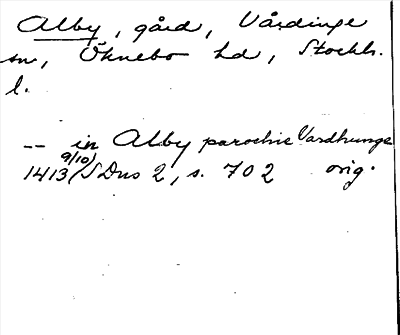 Alby, gård, Vårdinge
sn, Öknebo hd, Stockh.
l.
-- in Alby parochie Vardhunge
1413 (9/10) SDns 2, s. 702 orig.